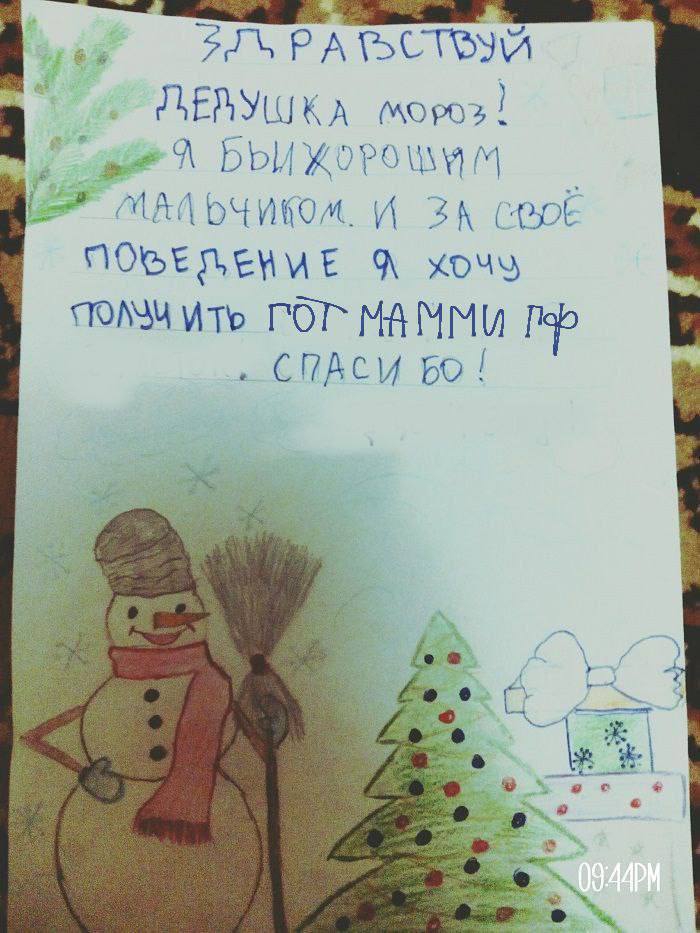 ЗДРАВСТВУЙ
ДЕДУШКА МОРОЗ!
Я БЫЛ ХОРОШИМ
МАЛЬЧИКОМ. И ЗА СВОЁ
ПОВЕДЕНИЕ Я ХОЧУ
ПОЛУЧИТЬ ГОТ МАММИ ГФ
. СПАСИБО!
09:44PM